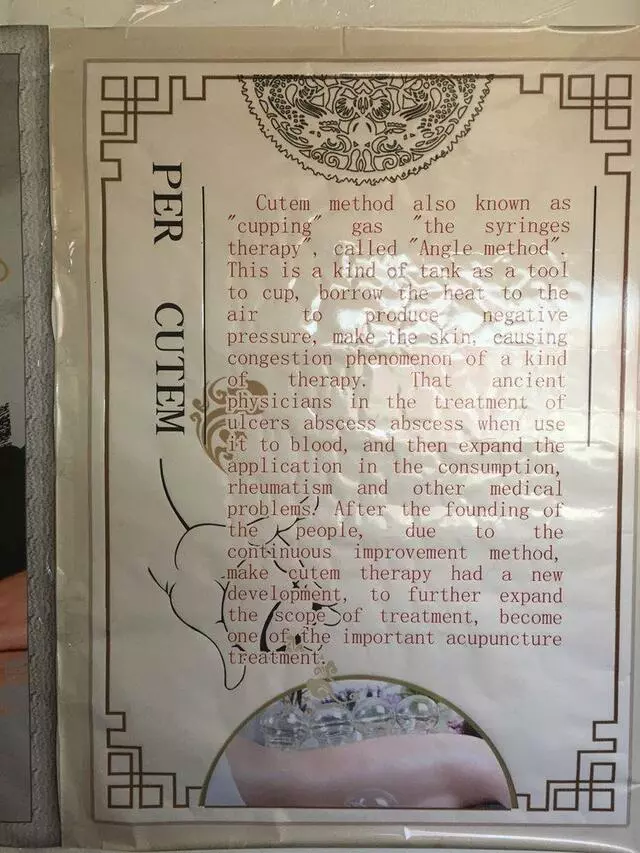 PER CUTEM
Cutem method also known as
"cupping" gas "the syringes
therapy", called "Angle method".
This is a kind of tank as a tool
to cup, borrow the heat to the
air to produce negative
pressure, make the skin, causing
congestion phenomenon of a kind
of therapy. That ancient
physicians in the treatment of
ulcers abscess abscess when use
it to blood, and then expand the
application in the consumption,
rheumatism and other medical
problems. After the founding of
the people, due to the
continuous improvement method,
make cutem therapy had a new
development, to further expand
the scope of treatment, become
one of the important acupuncture
treatment.